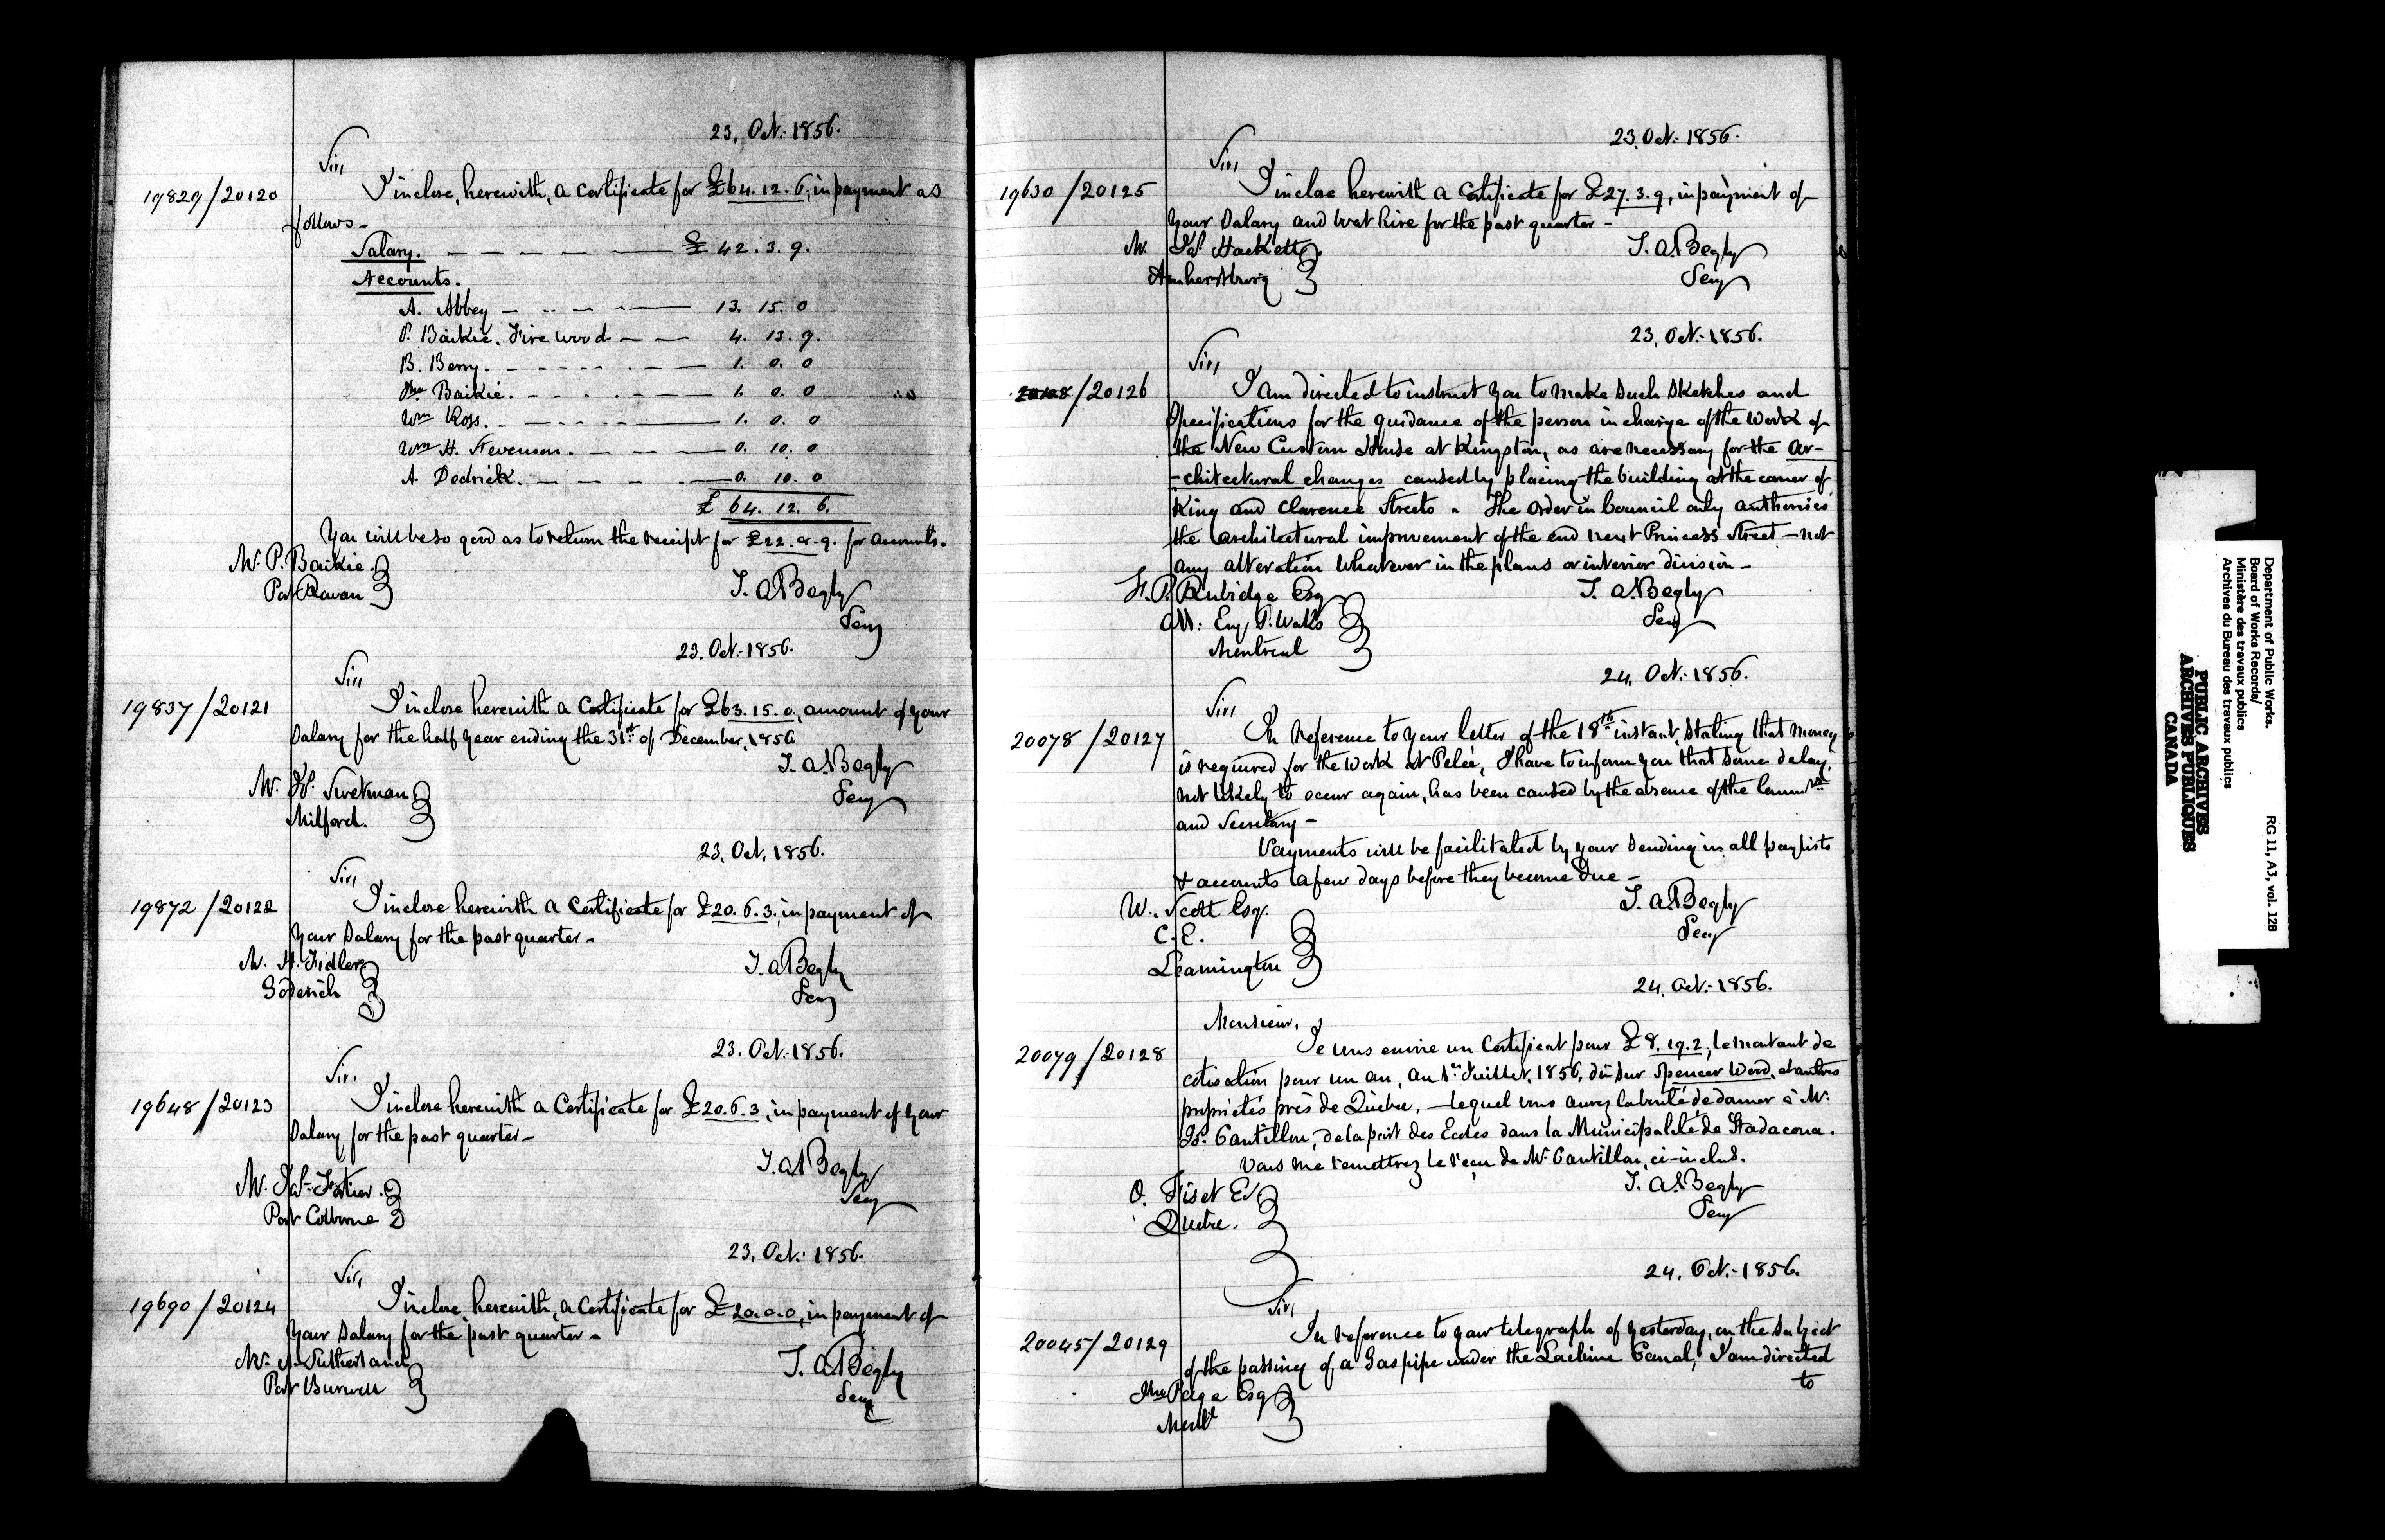 23. Oct: 1856.
Sir,
19829/20120
I inclose, herewith, a Certificate for £64.12.6, in payment as
follows-
Salary. £ 42.3.9.
Accounts.
A. Abbey 13. 15. 0
P. Baikie. Fire wood 4. 13. 9.
B. Berry. 1. 0. 0
Baikie. 1. 0. 0
Wm Ross. 1. 0. 0
Wm H. Stevenson. 0. 10. 0
A. Dedrick. 0. 10. 0
£ 64. 12. 6.
You will be so good as to return the receipt for £22.8.9. for accounts.
Mr. P. Baikie.
Port Rowan
T. A. Begly
Secy
23. Oct: 1856.
Sir,
19837/20121
I inclose herewith a Certificate for £63.15.0, amount of your
Salary for the half year ending the 31st of December, 1856
T. A. Begly
Secy
Mr. Swetman
Milford.
23. Oct. 1856.
Sir,
19872/20122
I inclose herewith a Certificate for £20.6.3, in payment of
your Salary for the past quarter-
Mr. H. Fidler
Goderich
T. A. Begly
Secy
23. Oct: 1856.
Sir,
19648/20123
I inclose herewith a Certificate for £20.6.3, in payment of your
Salary for the past quarter-
T. A. Begly
Secy
Mr. Fortier.
Port Colborne
23. Oct: 1856.
Sir,
19690/20124
I inclose, herewith, a Certificate for £20.0.0, in payment of
your Salary for the past quarter-
Mr. A. Sutherland
Port Burwell
T. A. Begly
Secy
23. Oct: 1856.
Sir,
19630/20125
I inclose herewith a Certificate for £27.3.9, in payment of
your Salary and boat hire for the past quarter-
Mr. Jas Hackett
Amherstburg
T. A. Begly
Secy
23. Oct: 1856.
Sir,
/20126
I am directed to instruct you to make such Sketches and
Specifications for the guidance of the person in charge of the Work of
the New Custom House at Kingston, as are necessary for the ar-
-chitectural changes caused by placing the building at the corner of
King and Clarence Streets - The Order in Council only authorises
the architectural improvement of the end next Princess Street - not
any alteration whatever in the plans or interior division -
F. P. Rubidge Esq
Ass: Eng P. Works
Montreal
T. A. Begly
Secy
24. Oct: 1856.
Sir,
20078/20127
In reference to your letter of the 18th instant, stating that money
is required for the work at Pelée, I have to inform you that some delay,
not likely to occur again, has been caused by the absence of the Commrs
and Secretary -
Payments will be facilitated by your sending in all paylists
& accounts a few days before they become due -
W. Scott Esq.
C.E.
Leamington
T. A. Begly
Secy
24. Oct: 1856.
Monsieur,
20079/20128
Je vous envoie un Certificat pour £8.19.2, le montant de
cotisation pour un an, au 1er Juillet, 1856, dû sur Spencer Wood, et autres
propriétés près de Québec, - lequel vous aurez la bonté de donner à Mr.
Cantillon, de la part des Ecoles dans la Municipalité de Stadacona.
Vous me remettrez le reçu de Mr. Cantillon, ci-inclus.
O. Fiset Er
Quebec.
T. A. Begly
Secy
24. Oct: 1856.
Sir,
20045/20129
In reference to your telegraph of yesterday, on the subject
of the passing of a Gas pipe under the Lachine Canal, I am directed
to
Jno Page Esq
Montl
Department of Public Works.
Board of Works Records/
Ministère des travaux publics
Archives du Bureau des travaux publics
RG 11, A3, vol. 128
PUBLIC ARCHIVES
ARCHIVES PUBLIQUES
CANADA